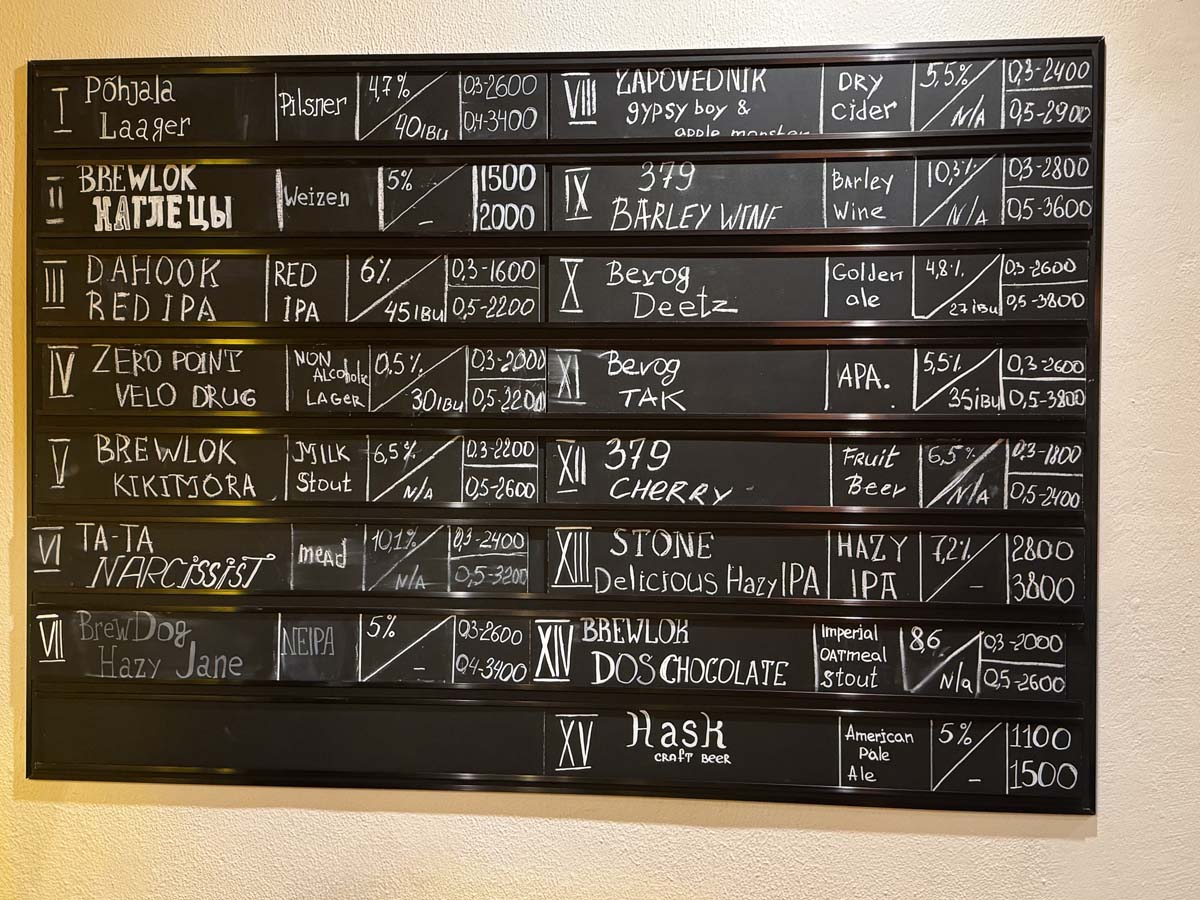 I
Põhjala
Laager
Pilsner
4,7%
40IBU
0,3-2600
0,4-3400
II
BREWLOK
НАГЛЕЦЫ
Weizen
5%
-
1500
2000
III
DAHOOK
RED IPA
RED
IPA
6%
45IBU
0,3-1600
0,5-2200
IV
ZERO POINT
VELO DRUG
NON
ALCOHOLIC
LAGER
0,5%
30IBU
0,3-2000
0,5-2200
V
BREWLOK
KIKIMORA
MILK
Stout
6,5%
N/A
0,3-2200
0,5-2600
VI
TA-TA
NARCISSIST
mead
10,1%
N/A
0,3-2400
0,5-3200
VII
BrewDog
Hazy Jane
NEIPA
5%
-
0,3-2600
0,4-3400
VIII
ZAPOVEDNIK
gypsy boy &
apple monster
DRY
Cider
5,5%
N/A
0,3-2400
0,5-2900
IX
379
BARLEY WINE
Barley
Wine
10,3%
N/A
0,3-2800
0,5-3600
X
Bevog
Deetz
Golden
ale
4,8%
27IBU
0,3-2600
0,5-3800
XI
Bevog
TAK
APA.
5,5%
35IBU
0,3-2600
0,5-3800
XII
379
CHERRY
FRUIT
Beer
6,5%
N/A
0,3-1800
0,5-2400
XIII
STONE
Delicious Hazy IPA
HAZY
IPA
7,2%
-
2800
3800
XIV
BREWLOK
DOS CHOCOLATE
Imperial
OATmeal
Stout
8,6
N/a
0,3-2000
0,5-2600
XV
Hask
CRAFT BEER
American
Pale
Ale
5%
-
1100
1500